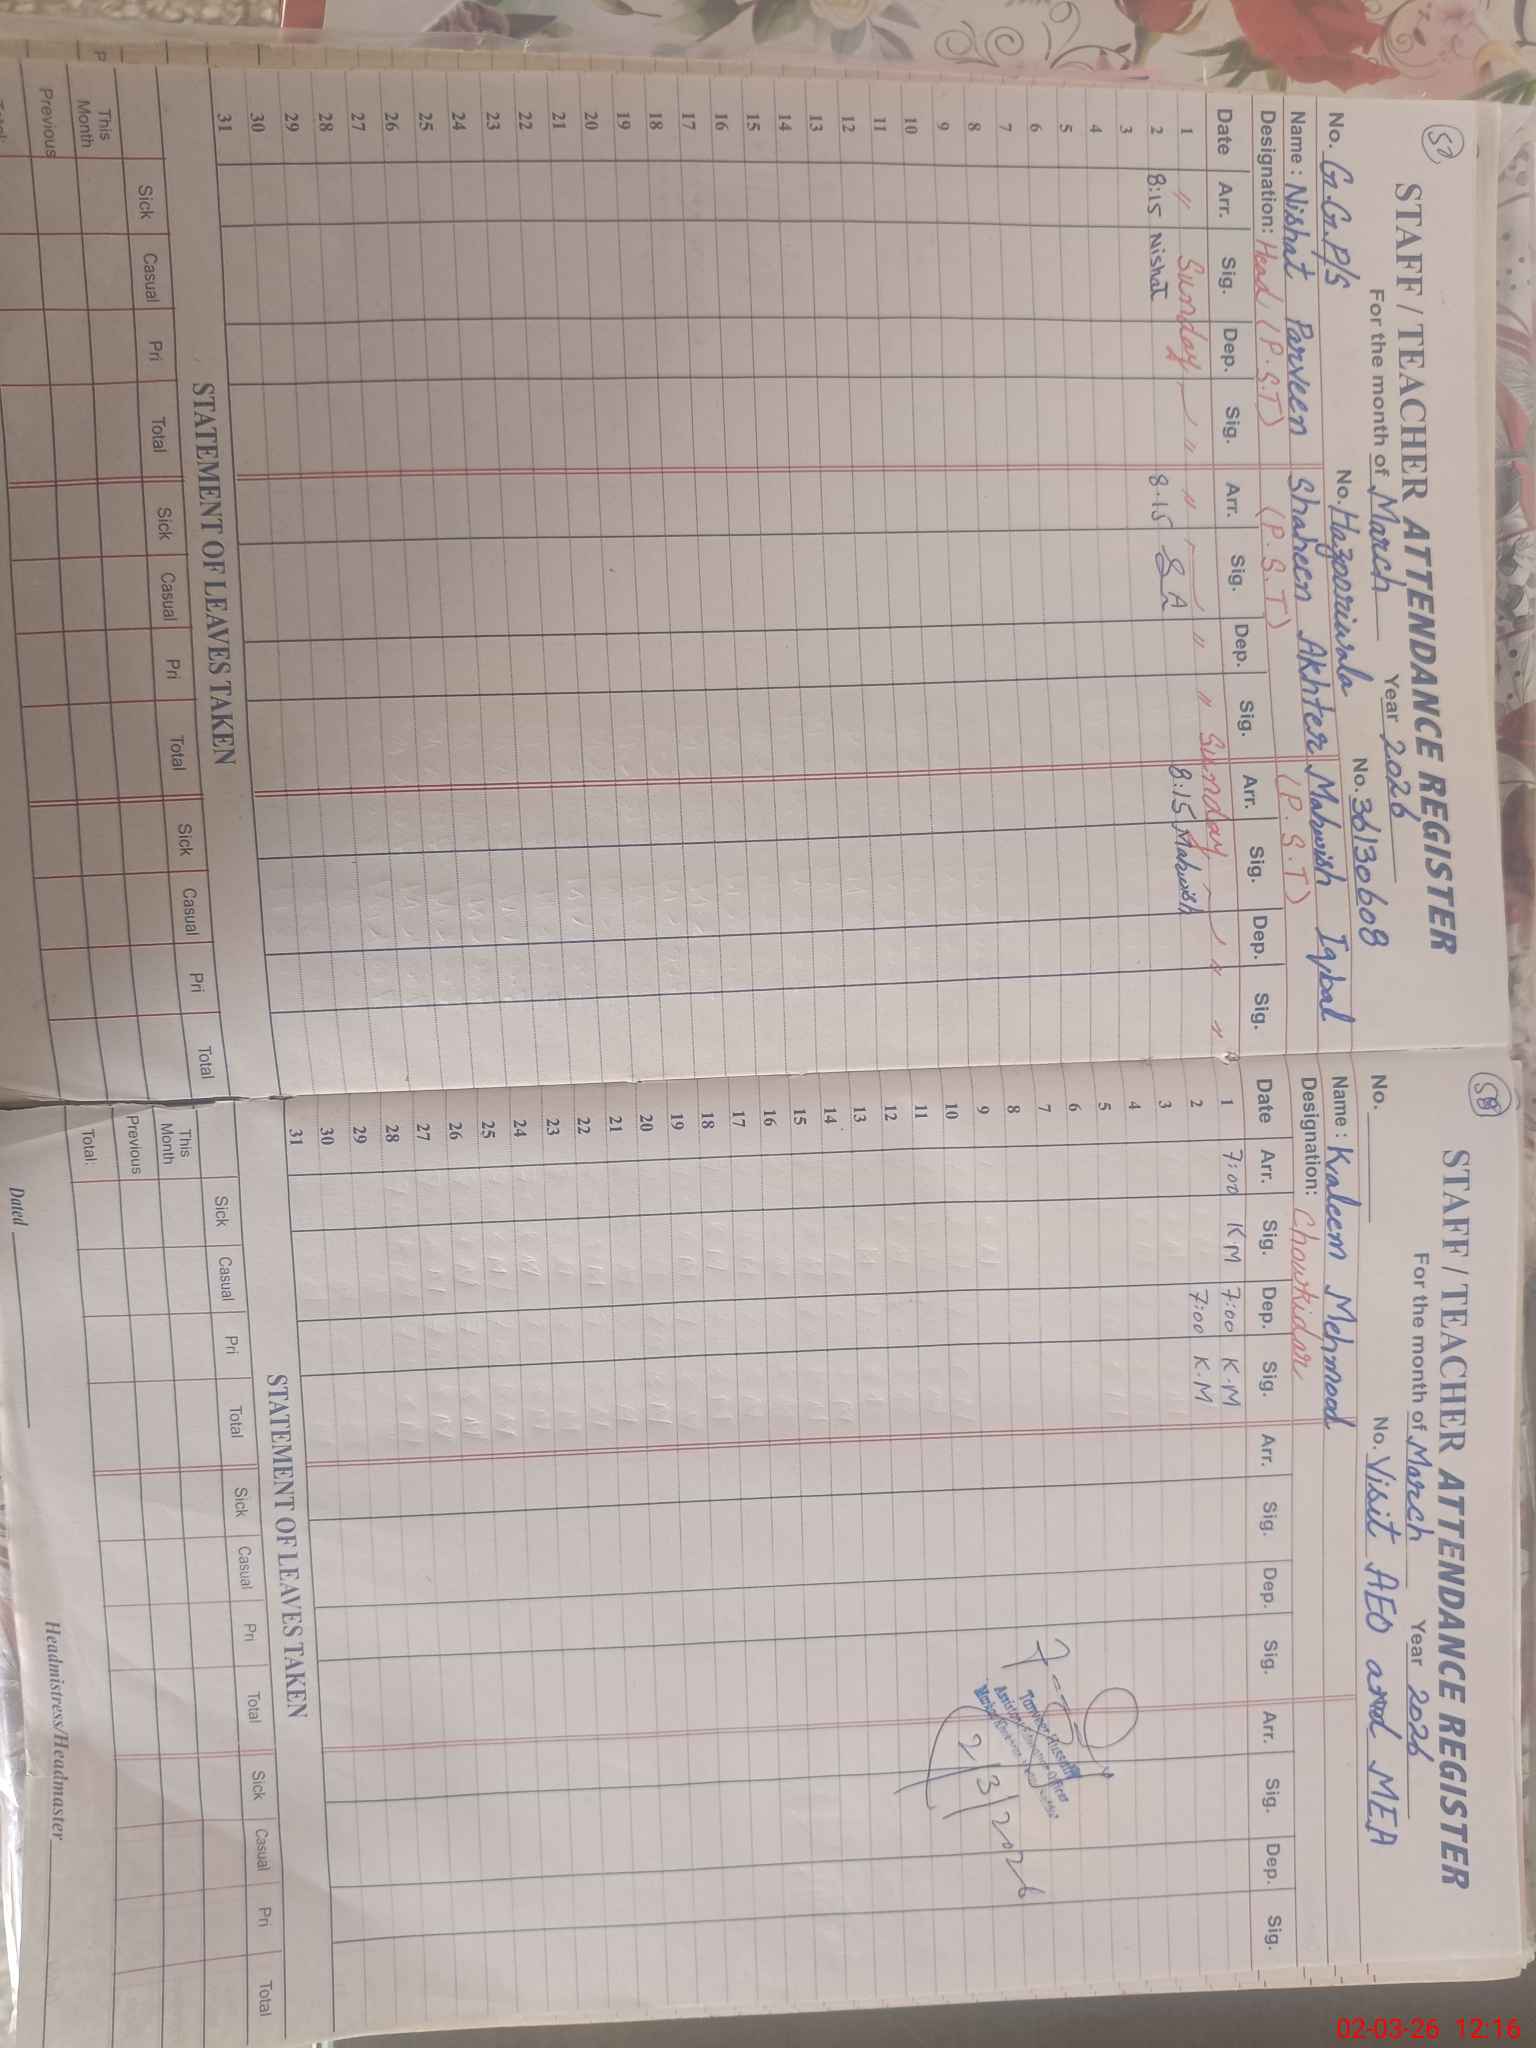 57
STAFF / TEACHER ATTENDANCE REGISTER
For the month of March Year 2026
No. G.G.P/S No. Hazooriwala No. 36130608
Name : Nishat Parveen Shaheen Akhter Mahwish Iqbal
Designation: Head (P.S.T) (P.S.T) (P.S.T)
Date Arr. Sig. Dep. Sig. Arr. Sig. Dep. Sig. Arr. Sig. Dep. Sig.
1 " Sunday " " " " Sunday " "
2 8:15 Nishat 8:15 S A 8:15 Mahwish
3
4
5
6
7
8
9
10
11
12
13
14
15
16
17
18
19
20
21
22
23
24
25
26
27
28
29
30
31
STATEMENT OF LEAVES TAKEN
Sick Casual Pri Total Sick Casual Pri Total Sick Casual Pri Total
This Month
Previous
Total:
58
STAFF / TEACHER ATTENDANCE REGISTER
For the month of March Year 2026
No. No. Visit AEO and MEA
Name : Kaleem Mehmood
Designation: Chowkidar
Date Arr. Sig. Dep. Sig. Arr. Sig. Dep. Sig. Arr. Sig. Dep. Sig.
1 7:00 K.M 7:00 K.M
2 7:00 K.M
3
4
5
6
7
8
9
10
11
12
13
14
15
16
17
18
19
20
21
22
23
24
25
26
27
28
29
30
31
Tanveer Hussain
Assistant Education Officer
2/3/2026
STATEMENT OF LEAVES TAKEN
Sick Casual Pri Total Sick Casual Pri Total Sick Casual Pri Total
This Month
Previous
Total:
Dated
Headmistress/Headmaster
02-03-26 12:16